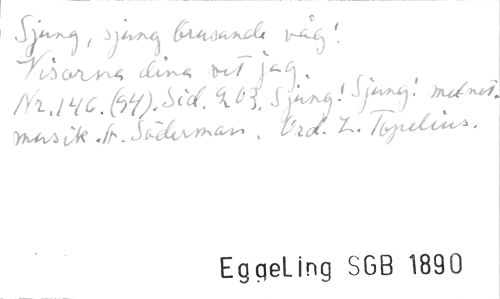 Sjung, sjung brusande våg!
Visorna dina vet jag.
Nr. 146. (94). Sid. 203. Sjung! Sjung! melnot.
musik. A. Söderman. Ord. Z. Topelius.
EggeLing SGB 1890